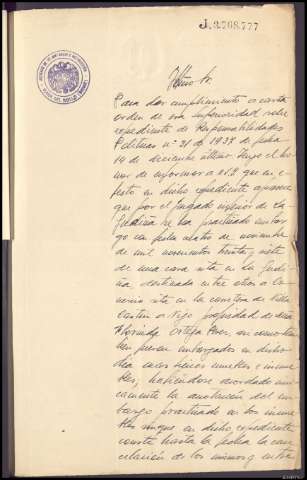 J.3.768.777
Iltmo Sr.
Para dar cumplimiento a carta
orden de esa Superioridad sobre
expediente de Responsabilidades
Politicas nº 31 de 1938 de fecha
14 de diciembre ultimo tengo el ho
nor de informar a V.I. que en e
fecto en dicho expediente aparece
que por el Juzgado inferior de La
Gudiña se ha practicado embar
go con fecha cuatro de noviembre
de mil novecientos treinta y siete
de una casa sita en La Gudi
ña destinada entre otros a
sita en la carretera de Villa
Castin a Vigo propiedad de
Florinda Ortega tam
bien fueron embargados en dicho
dia otros bienes muebles e inmue
bles, habiendose acordado uni
camente la anotacion del em
bargo practicado en los inmue
bles sin que en dicho expediente
conste hasta la fecha la can
celacion de los mismos y entre